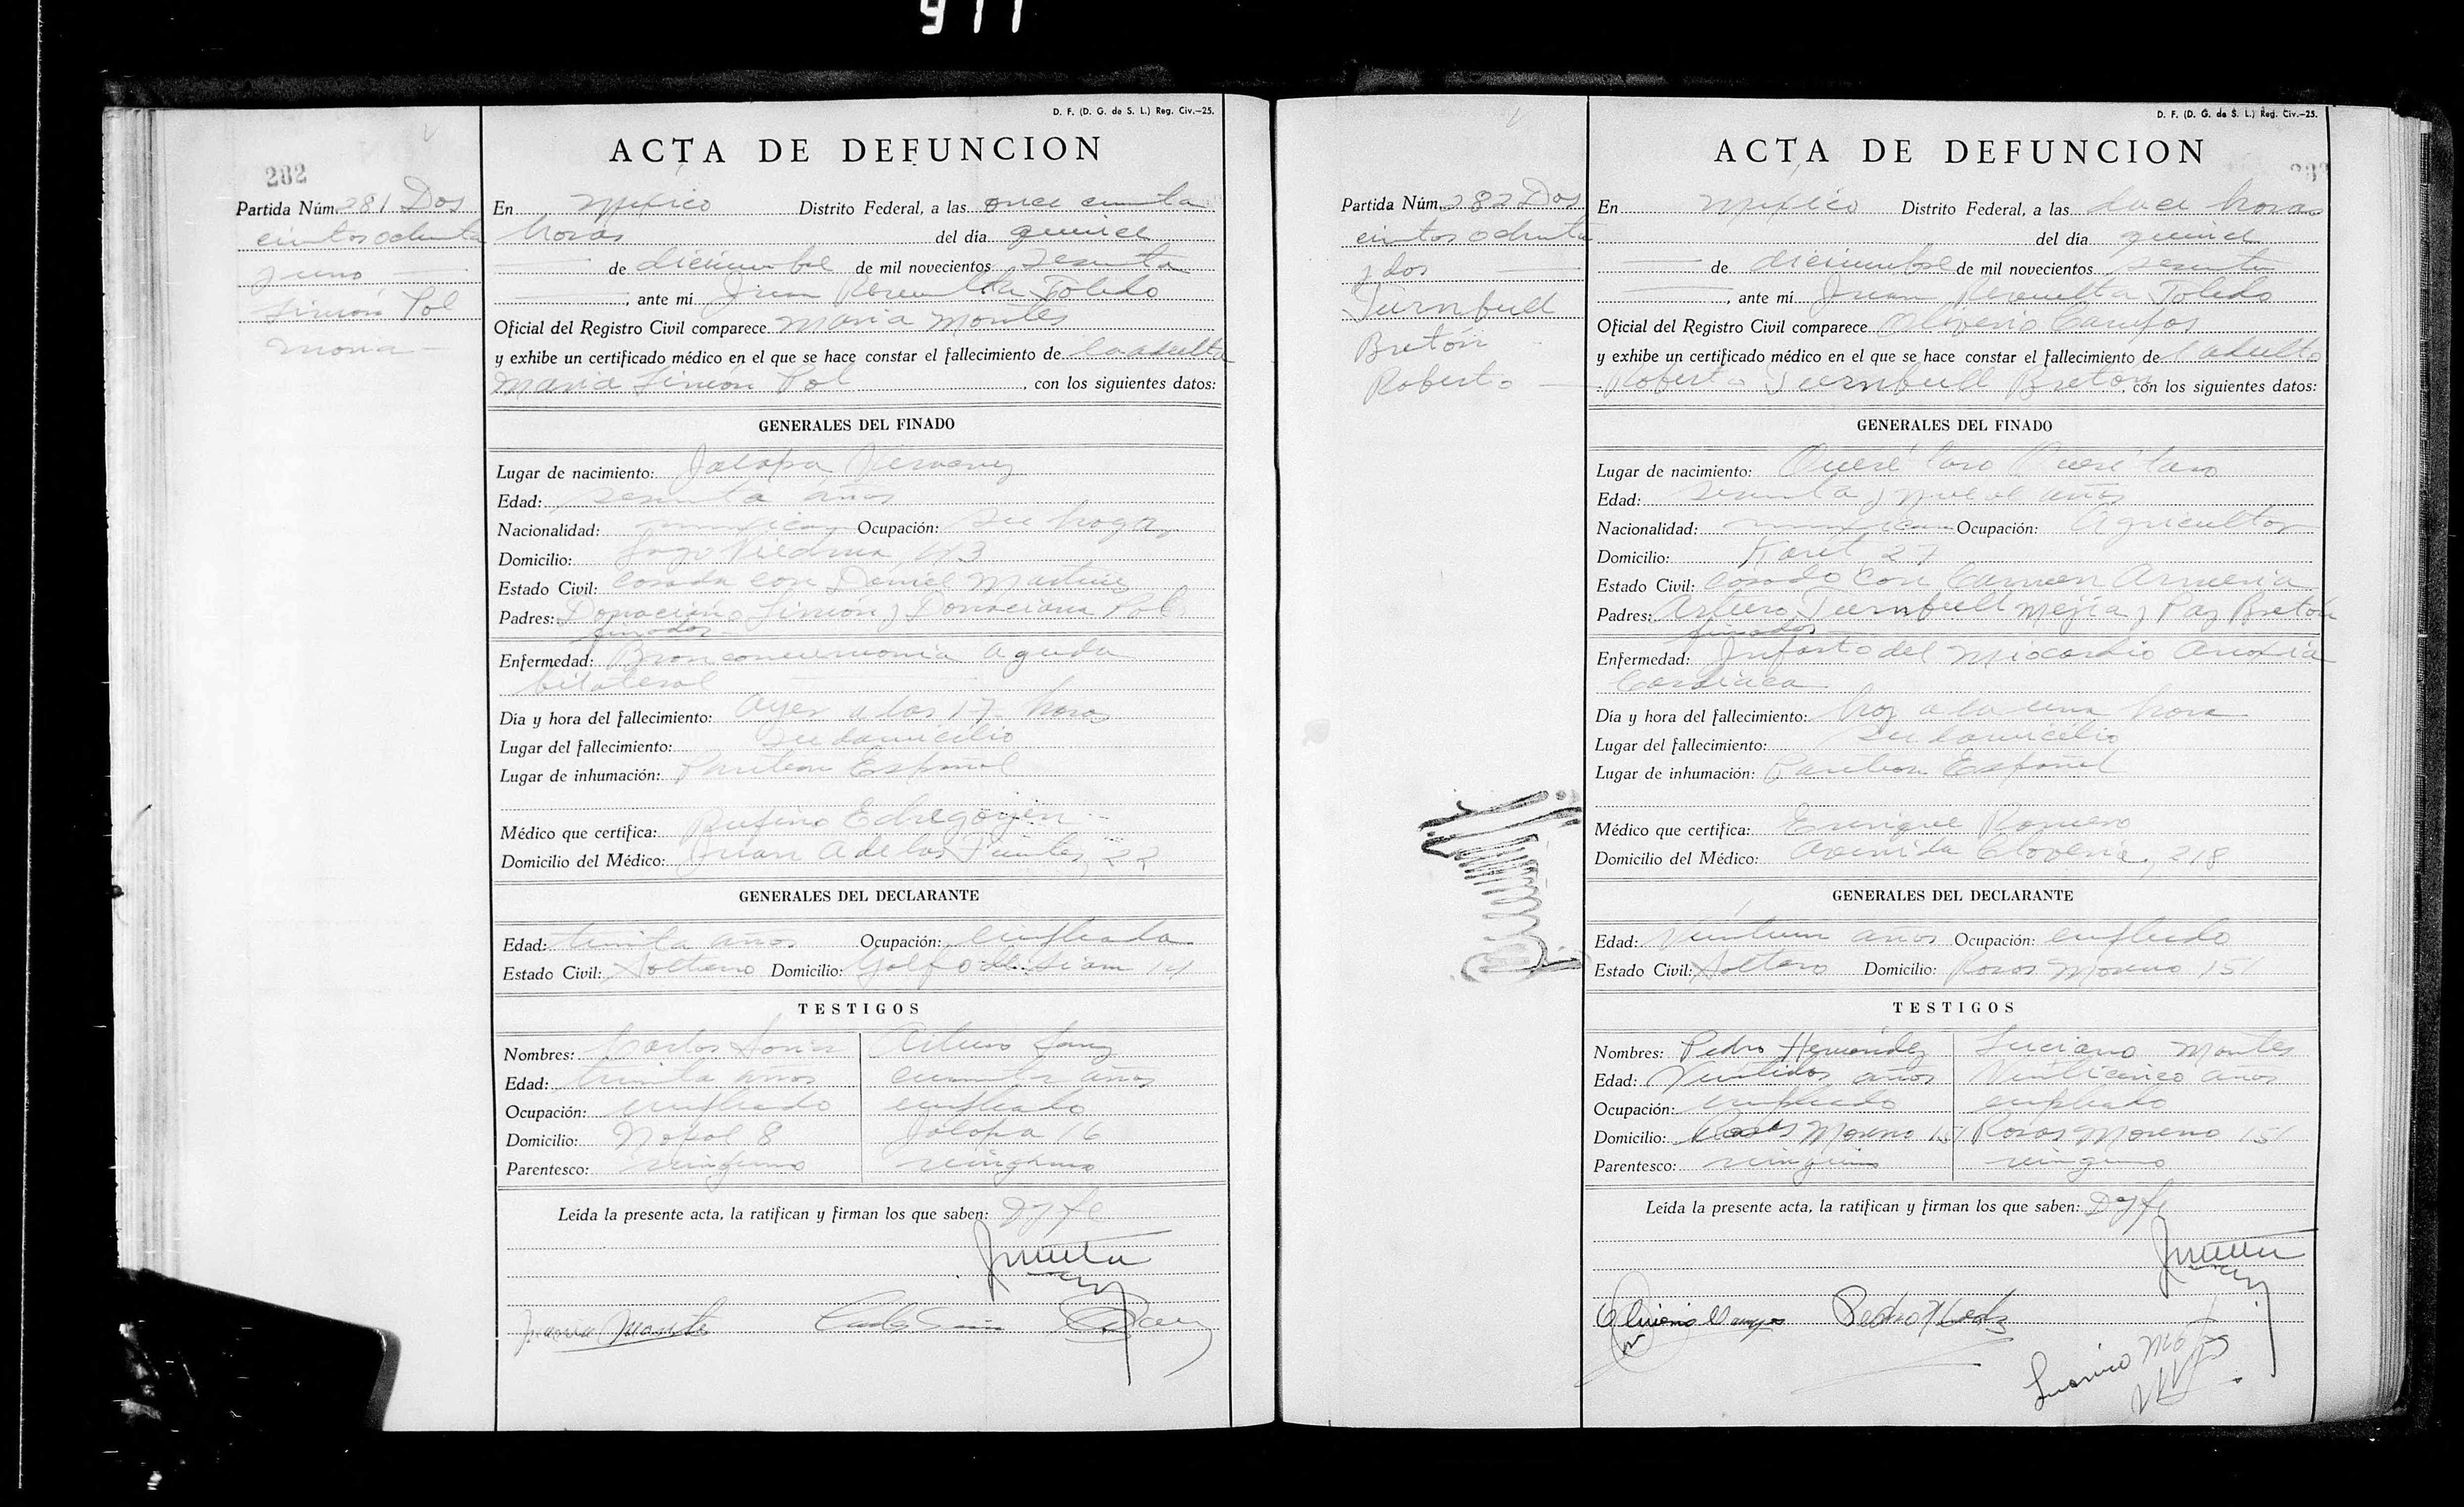 977
D. F. (D. G. de S. L.) Reg. Civ.—25.
ACTA DE DEFUNCION
282
Partida Núm. 281 Dos
cientos ochenta
y uno
Simón Pol
Maria
En Mexico Distrito Federal, a las once cuarenta
horas del día quince
de diciembre de mil novecientos sesenta
, ante mi Juan Revuelta Toledo
Oficial del Registro Civil comparece Maria Montes
y exhibe un certificado médico en el que se hace constar el fallecimiento de la adulta
Maria Simón Pol, con los siguientes datos:
GENERALES DEL FINADO
Lugar de nacimiento: Jalapa Veracruz
Edad: sesenta años
Nacionalidad: mexicana Ocupación: su hogar
Domicilio: Lago Viedma
Estado Civil: casada con Daniel Martinez
Padres: Donaciano Simón y Donaciana Pol
finados
Enfermedad: Bronconeumonia aguda
bilateral
Dia y hora del fallecimiento: Ayer a las 17 horas
Lugar del fallecimiento: su domicilio
Lugar de inhumación: Panteon Español
Médico que certifica: Rufino Echegoyen
Domicilio del Médico: Juan A de las Fuentes 22
GENERALES DEL DECLARANTE
Edad: treinta años Ocupación: empleada
Estado Civil: Soltera Domicilio: Golfo de Siam 14
TESTIGOS
Nombres: Carlos Arturo
Edad: treinta años cuarenta años
Ocupación: empleado empleado
Domicilio: Nopal 8 Jalapa 16
Parentesco: ninguno ninguno
Leida la presente acta, la ratifican y firman los que saben: Doy fe
Maria Montes
D. F. (D. G. de S. L.) Reg. Civ.—25.
ACTA DE DEFUNCION
Partida Núm. 282 Dos
cientos ochenta
y dos
Turnbull
Bretón
Roberto
En Mexico Distrito Federal, a las doce horas
del día quince
de diciembre de mil novecientos sesenta
, ante mi Juan Revuelta Toledo
Oficial del Registro Civil comparece Oliverio Campos
y exhibe un certificado médico en el que se hace constar el fallecimiento de l adulto
Roberto Turnbull Breton, con los siguientes datos:
GENERALES DEL FINADO
Lugar de nacimiento: Querétaro Querétaro
Edad: sesenta y nueve años
Nacionalidad: mexicana Ocupación: Agricultor
Domicilio: 27
Estado Civil: casado con Carmen Armeria
Padres: Arturo Turnbull Mejia y Paz Bretón
finados
Enfermedad: Infarto del Miocardio Anoxia
Cardiaca
Dia y hora del fallecimiento: hoy a la una hora
Lugar del fallecimiento: su domicilio
Lugar de inhumación: Panteon Español
Médico que certifica: Enrique Romero
Domicilio del Médico: Avenida 218
GENERALES DEL DECLARANTE
Edad: Veintiun años Ocupación: empleado
Estado Civil: Soltero Domicilio: Rosas Moreno 151
TESTIGOS
Nombres: Pedro Hernández Luciano Montes
Edad: Veintidos años Veinticinco años
Ocupación: empleado empleado
Domicilio: Rosas Moreno 151 Rosas Moreno 151
Parentesco: ninguno ninguno
Leida la presente acta, la ratifican y firman los que saben: Doy fe
Oliverio Campos Pedro Hdez